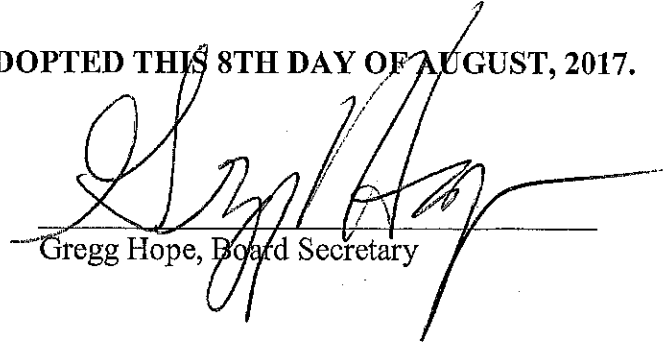 DOPTED THIS 8TH DAY OF AUGUST, 2017.
Gregg Hope
Gregg Hope, Board Secretary